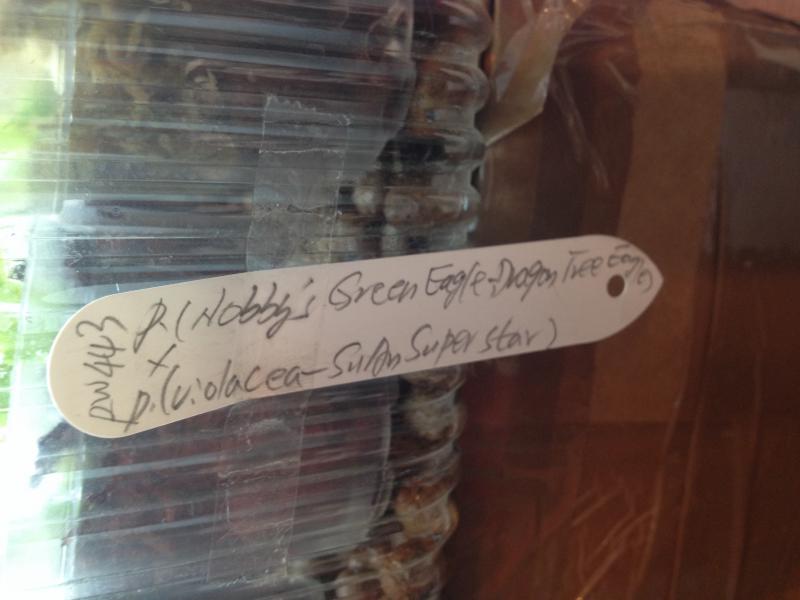 PW443
P. (Nobby's Green Eagle-Dragon Tree Eagle)
X
P. (Violacea-SuAn Super star)